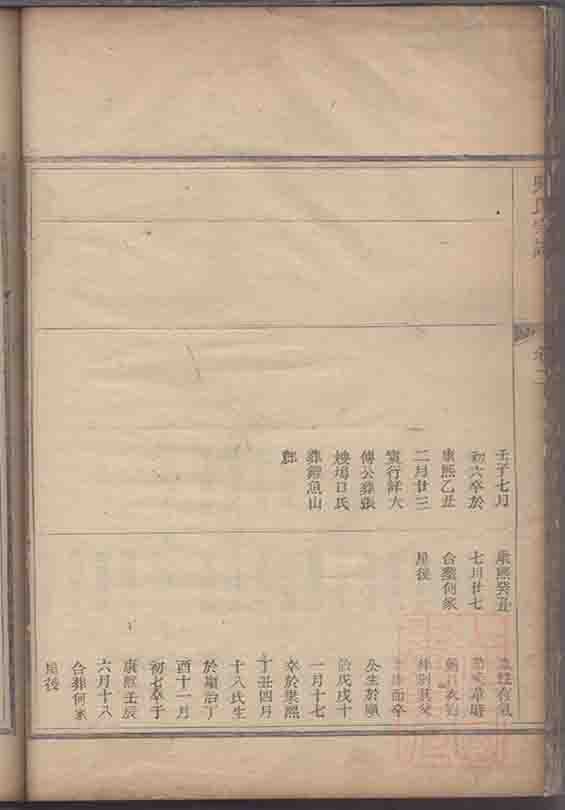 氏宗譜
卷二
壬子七月
初六卒於
康熙乙丑
二月廿三
實行詳大
傳公葬張
坳塢口氏
葬鯉魚山
康熙癸丑
七月廿七
合葬何家
屋後
而卒
公生於順
治戊戌十
一月十七
卒於康熙
丁丑四月
十八氏生
於順治丁
酉十一月
初七卒于
康熙壬辰
六月十八
合葬何家
屋後